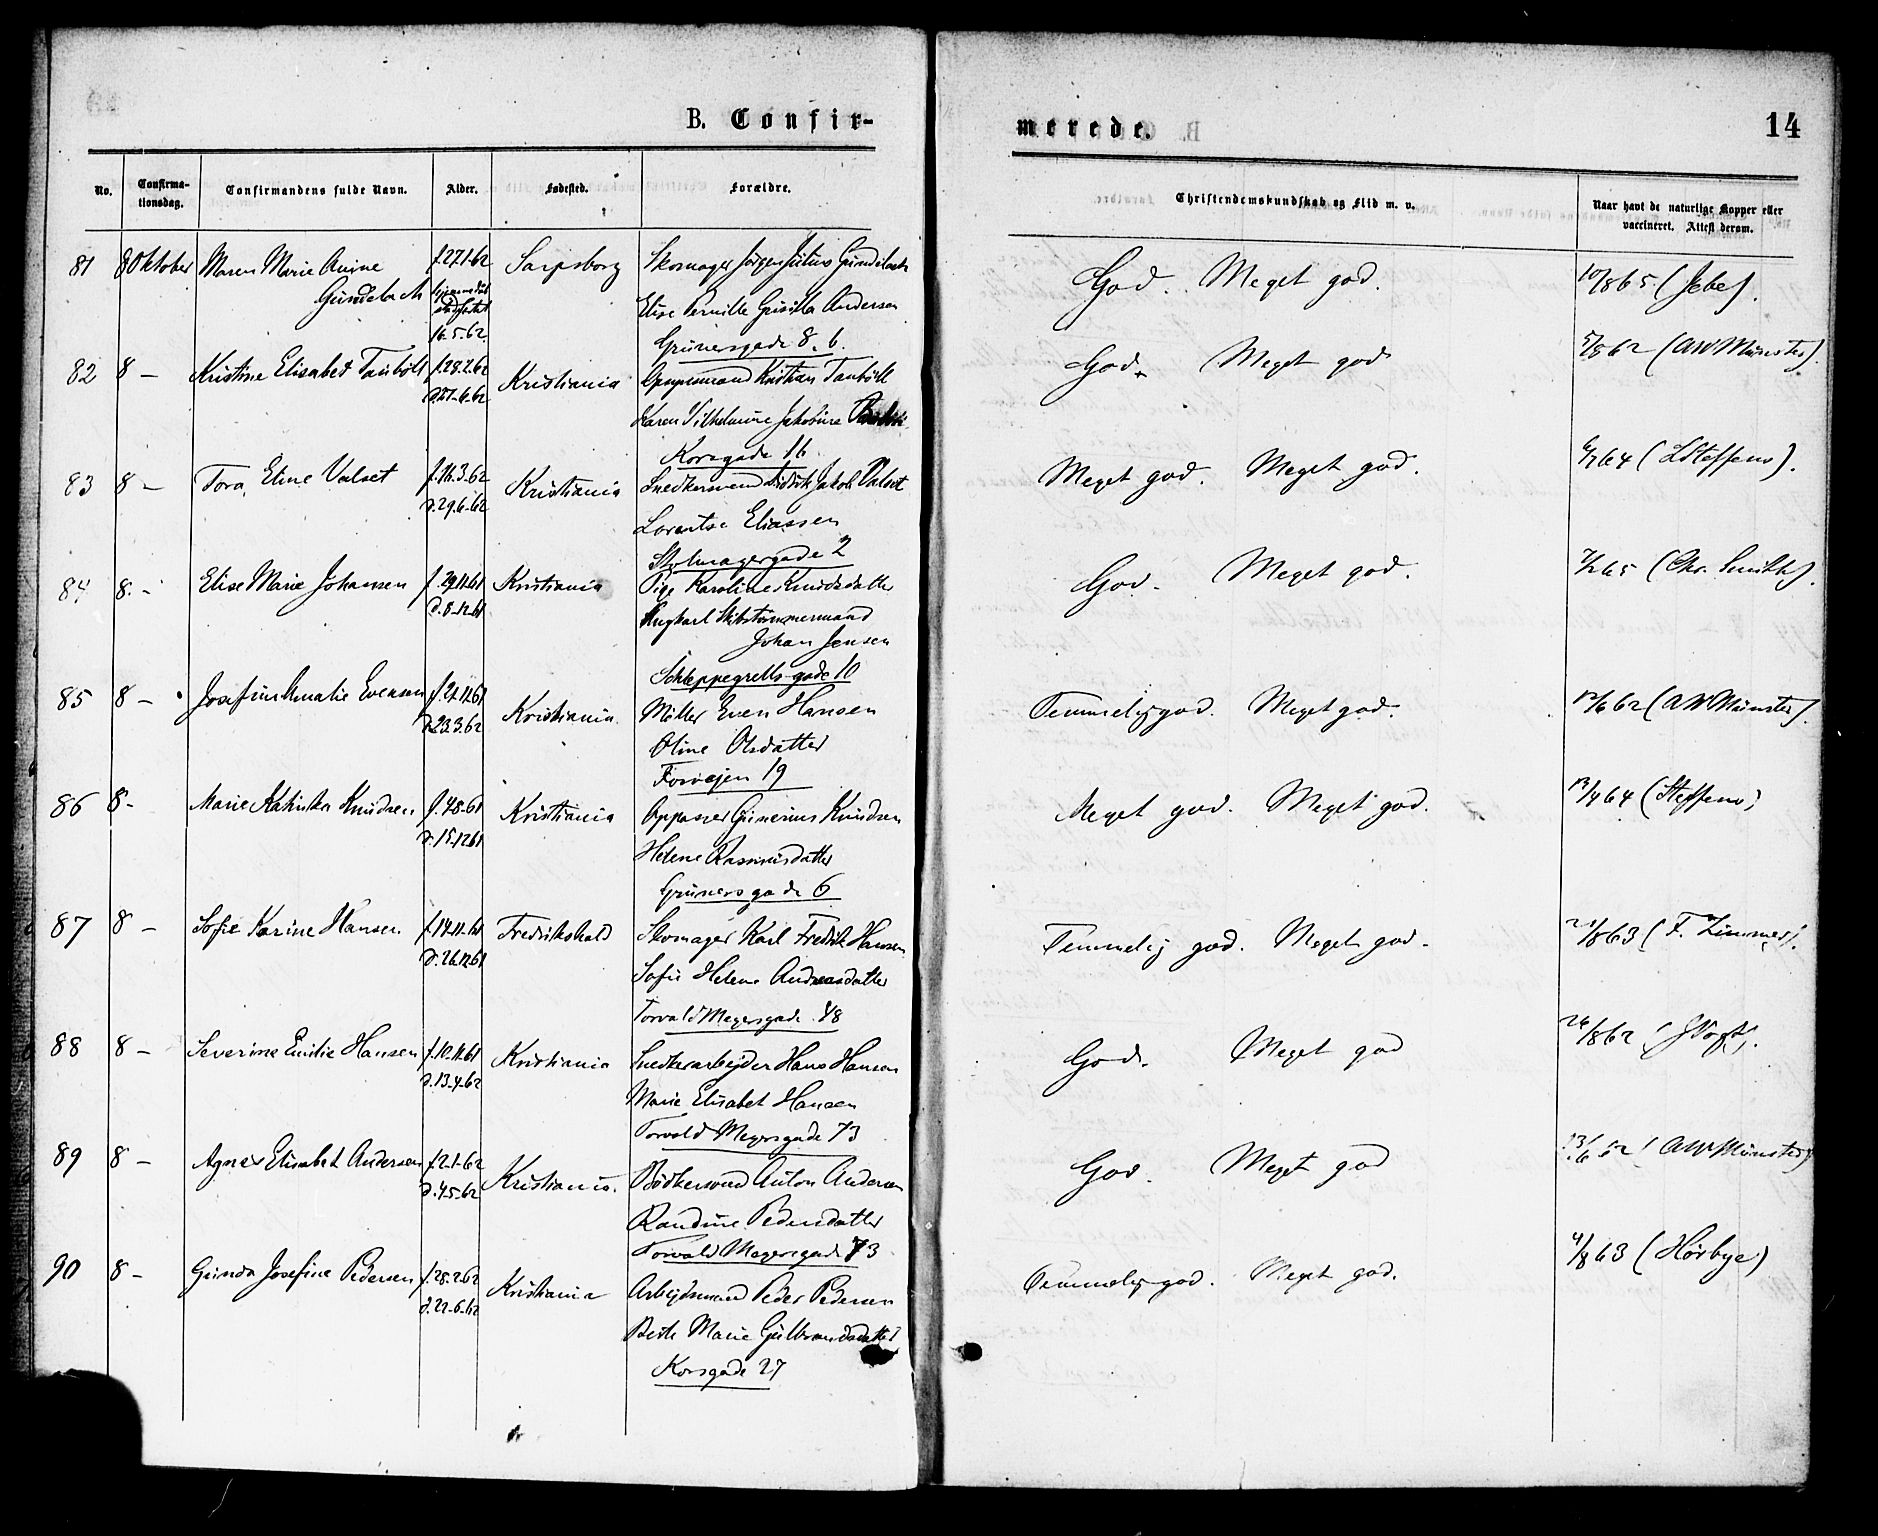 B. Confir-
merede.
14
No.
Confirma-
tionsdag.
Confirmandens fulde Navn.
Alder.
Fødested.
Forældre.
Christendomskundskab og Flid m. v.
Naar havt de naturlige Kopper eller
vaccineret. Attest derom.
81 8 Oktober Maren Marie f. 27.1-62 Sarpsborg Skomager Jørgen Julius
God. Meget god. 10/8 65. (Jebe).
16.5.62 Elise Pernille Andersen
Grünersgade 8. b.
82 8 - Kristine Elisabet f. 28.2.62 Kristiania Kristian
God. Meget god 5/8 62 (AW Münster).
d. 27-6-62 Karen Vilhelmine Jakobine
Korsgade 16.
83 8 - Tora Eline Valset f. 16.3-62 Kristiania Snedkersvend Jakob Valset
Meget god. Meget god. 64 (LSteffens).
d. 29.6-62 Lorentse Eliassen
2
84 8. - Elise Marie Johansen f. 29.11.61 Kristiania Pige Karoline Knudsdatter
God. Meget god. 65 (Chr. Smith).
d. 8-12-61 Ungkarl Skibstømmermand
Johan Jensen
Schleppegrells gade 10
85 8 - Josefine Amalie Evensen f. 21.11.61 Kristiania. Møller Even Hansen
Temmelig god. Meget god. 12/6 62 (AW Münster).
d. 23.3.62 Oline Olsdatter
19
86 8 - Marie Kathinka Knudsen f. 4.8-61 Kristiania Oppasser Grinerius Knudsen
Meget god. Meget god. 13/4 64 (Steffens)
d. 15-12.61 Helene Rasmusdatter
Grünersgade 6
87 8 - Sofie Karine Hansen. f. 14.11-61 Fredrikshald Skomager Karl Fredrik Hansen
Temmelig god. Meget god. 21/8 63 (F. Zimmer).
d. 26.12.61 Sofie Helene Andreasdatter
Torvald Meyersgade 48
88 8 - Severine Emilie Hansen f. 10.11.61 Kristiania Snedkerarbejder Hans Hansen
God. Meget god 26/8 62 (JVogt).
d. 13-4-62 Marie Elisabet Hansen
Torvald Meyersgade 73
89 8 - Agnes Elisabet Andersen f. 2-1-62 Kristiania. Bødkersvend Anton Andersen
God. Meget god (AW Münster)
d. 4.5-62 Randine Pedersdatter
Torvald Meyersgade 73
90 8 - Gunda Josefine Pedersen f. 28.2.62 Kristiania Arbejdsmand Peder Pedersen
Temmelig god. Meget god. 4/8 63 (Hørbye)
d. 22-6-62 Berte Marie Gulbrandsdatter
Korsgade 27